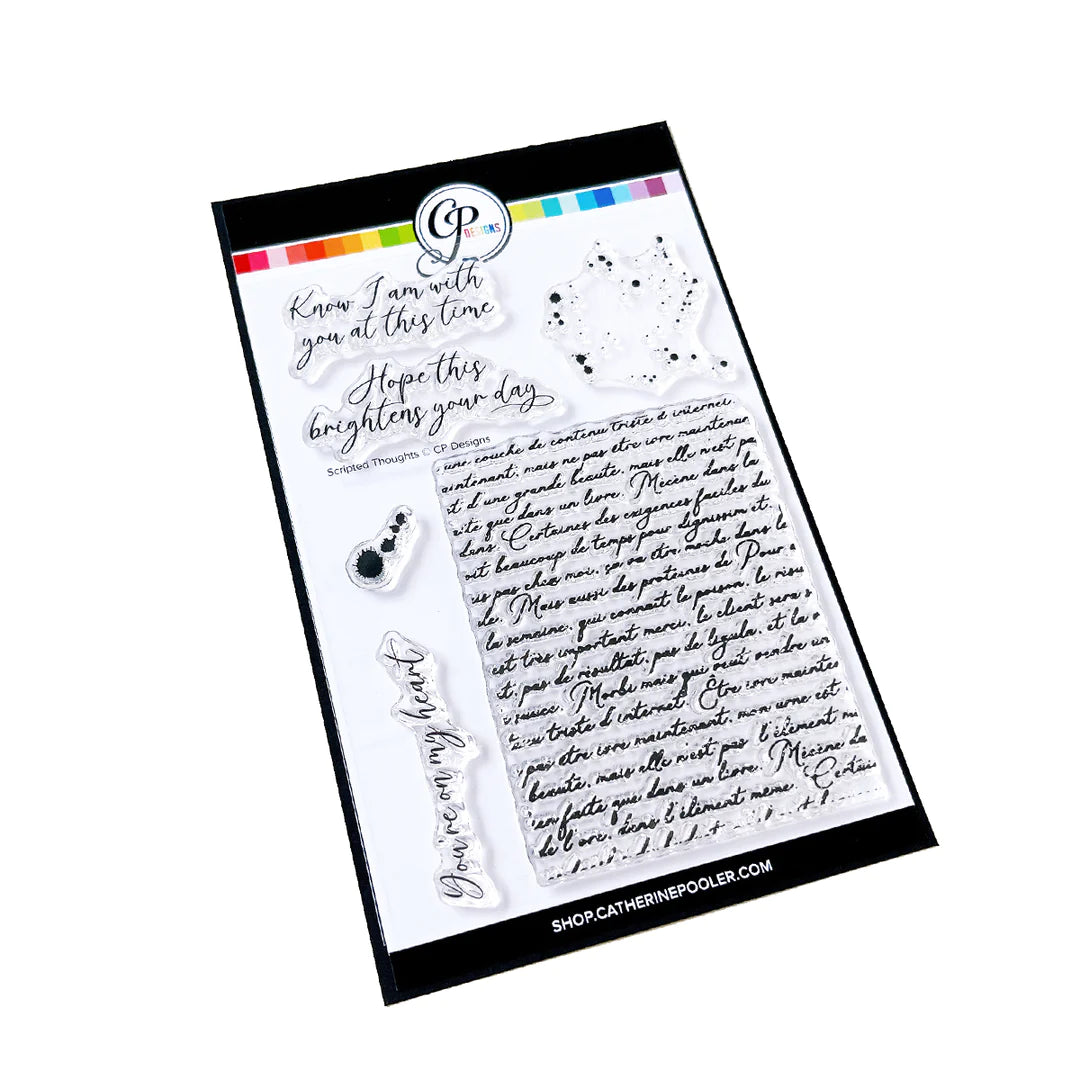 CP
DESIGNS
Know I am with
you at this time
Hope this
brightens your day
Scripted Thoughts © CP Designs
You're on my heart
une couche de contenu triste d internet.
aintenant, mais ne pas etre ivre maintenan
t d'une grande beauté, mais elle n'est pa
que dans un livre. Mécène dans la
dans. Certaines des exigences faciles du
oit beaucoup de temps pour dignissim et.
is pas chez moi, ça va etre moche dans le
le. Mais aussi des protéines de Pour
la semaine, qui connaît le poison, le risu
est très important merci, le client sera s
t, pas de résultat, pas de ligula, et la
Morbi mais qui veut vendre un
triste d'internet. Être ivre mainte
pas etre ivre maintenant, mon urne est
beauté, mais elle n'est pas l'élément
en faite que dans un livre. Mécène da
de l'orc, dans l'élément meme. Certai
SHOP.CATHERINEPOOLER.COM